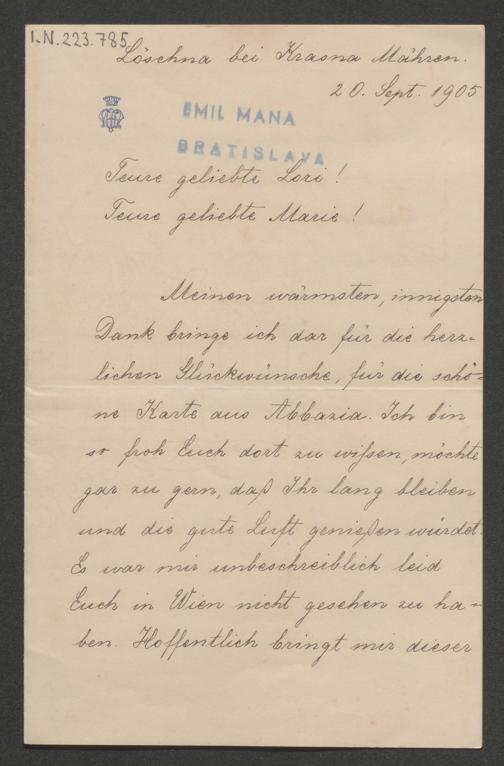 I.N. 223.785
Löschna bei Krasna Mähren.
20. Sept. 1905
EMIL MANA
BRATISLAVA
Teure geliebte Lori!
Teure geliebte Marie!
Meinen wärmsten, innigsten
Dank bringe ich dar für die herz-
lichen Glückwünsche, für die schö-
ne Karte aus Abbazia. Ich bin
so froh Euch dort zu wißen, möchte
gar zu gern, daß Ihr lang bleiben
und die gute Luft genießen würdet.
Es war mir unbeschreiblich leid
Euch in Wien nicht gesehen zu ha-
ben. Hoffentlich bringt mir dieser